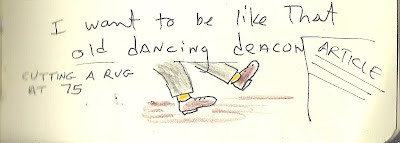 I want to be like That
old dancing deacon
CUTTING A RUG
AT 75
ARTICLE